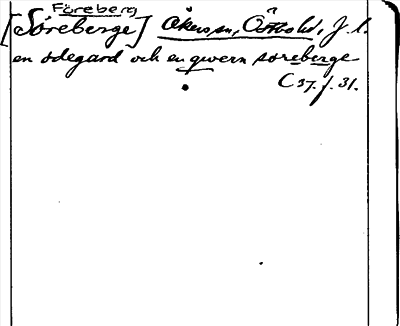 Föreberg
[Söreberge] Åkersen, Östbold, J. l.
en ödegard och en qwern soreberge
C 37. f. 31.